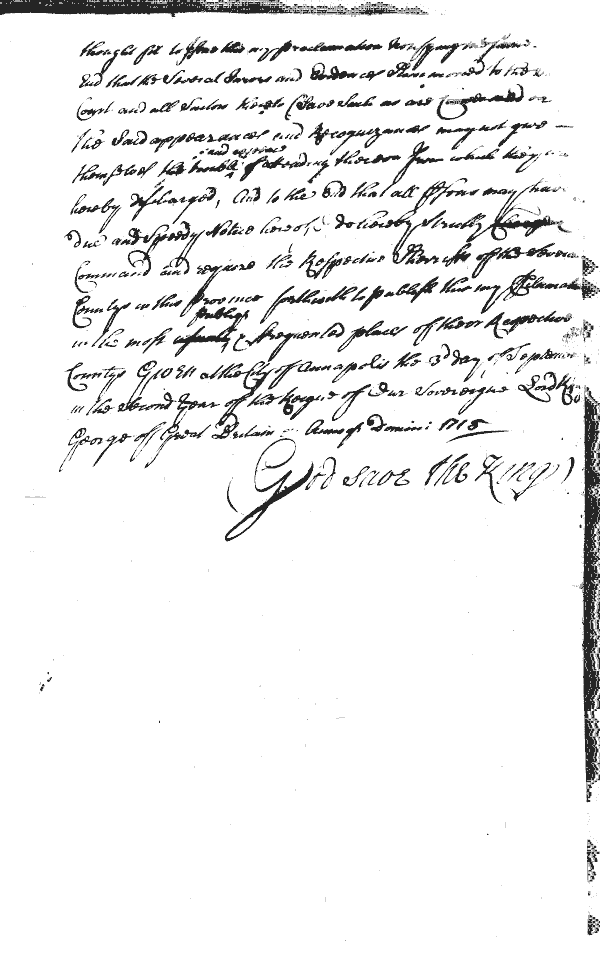 thought fit to Issue this my Proclamation
And that the Several Jurors and Evidences Summoned to the
Court and all Suitors thereto (Save Such as are Concerned in
the Said appearances and Recognizances may not give —
and expence
themselves the trouble of attending thereon from which they
hereby discharged, And to the End that all Persons may have
due and Speedy Notice hereof, I do hereby Strictly Charge
Command and require the Respective Sherriffs of the Several
Countys in this Province forthwith to publish this my Proclamation
publiq
in the most usually & frequented places of their Respective
Countys Given at the City of Annapolis the 3d day of September
in the Second Year of the Reigne of Our Sovereigne Lord
George of Great Britain Annoq Domini: 1715
God save the King